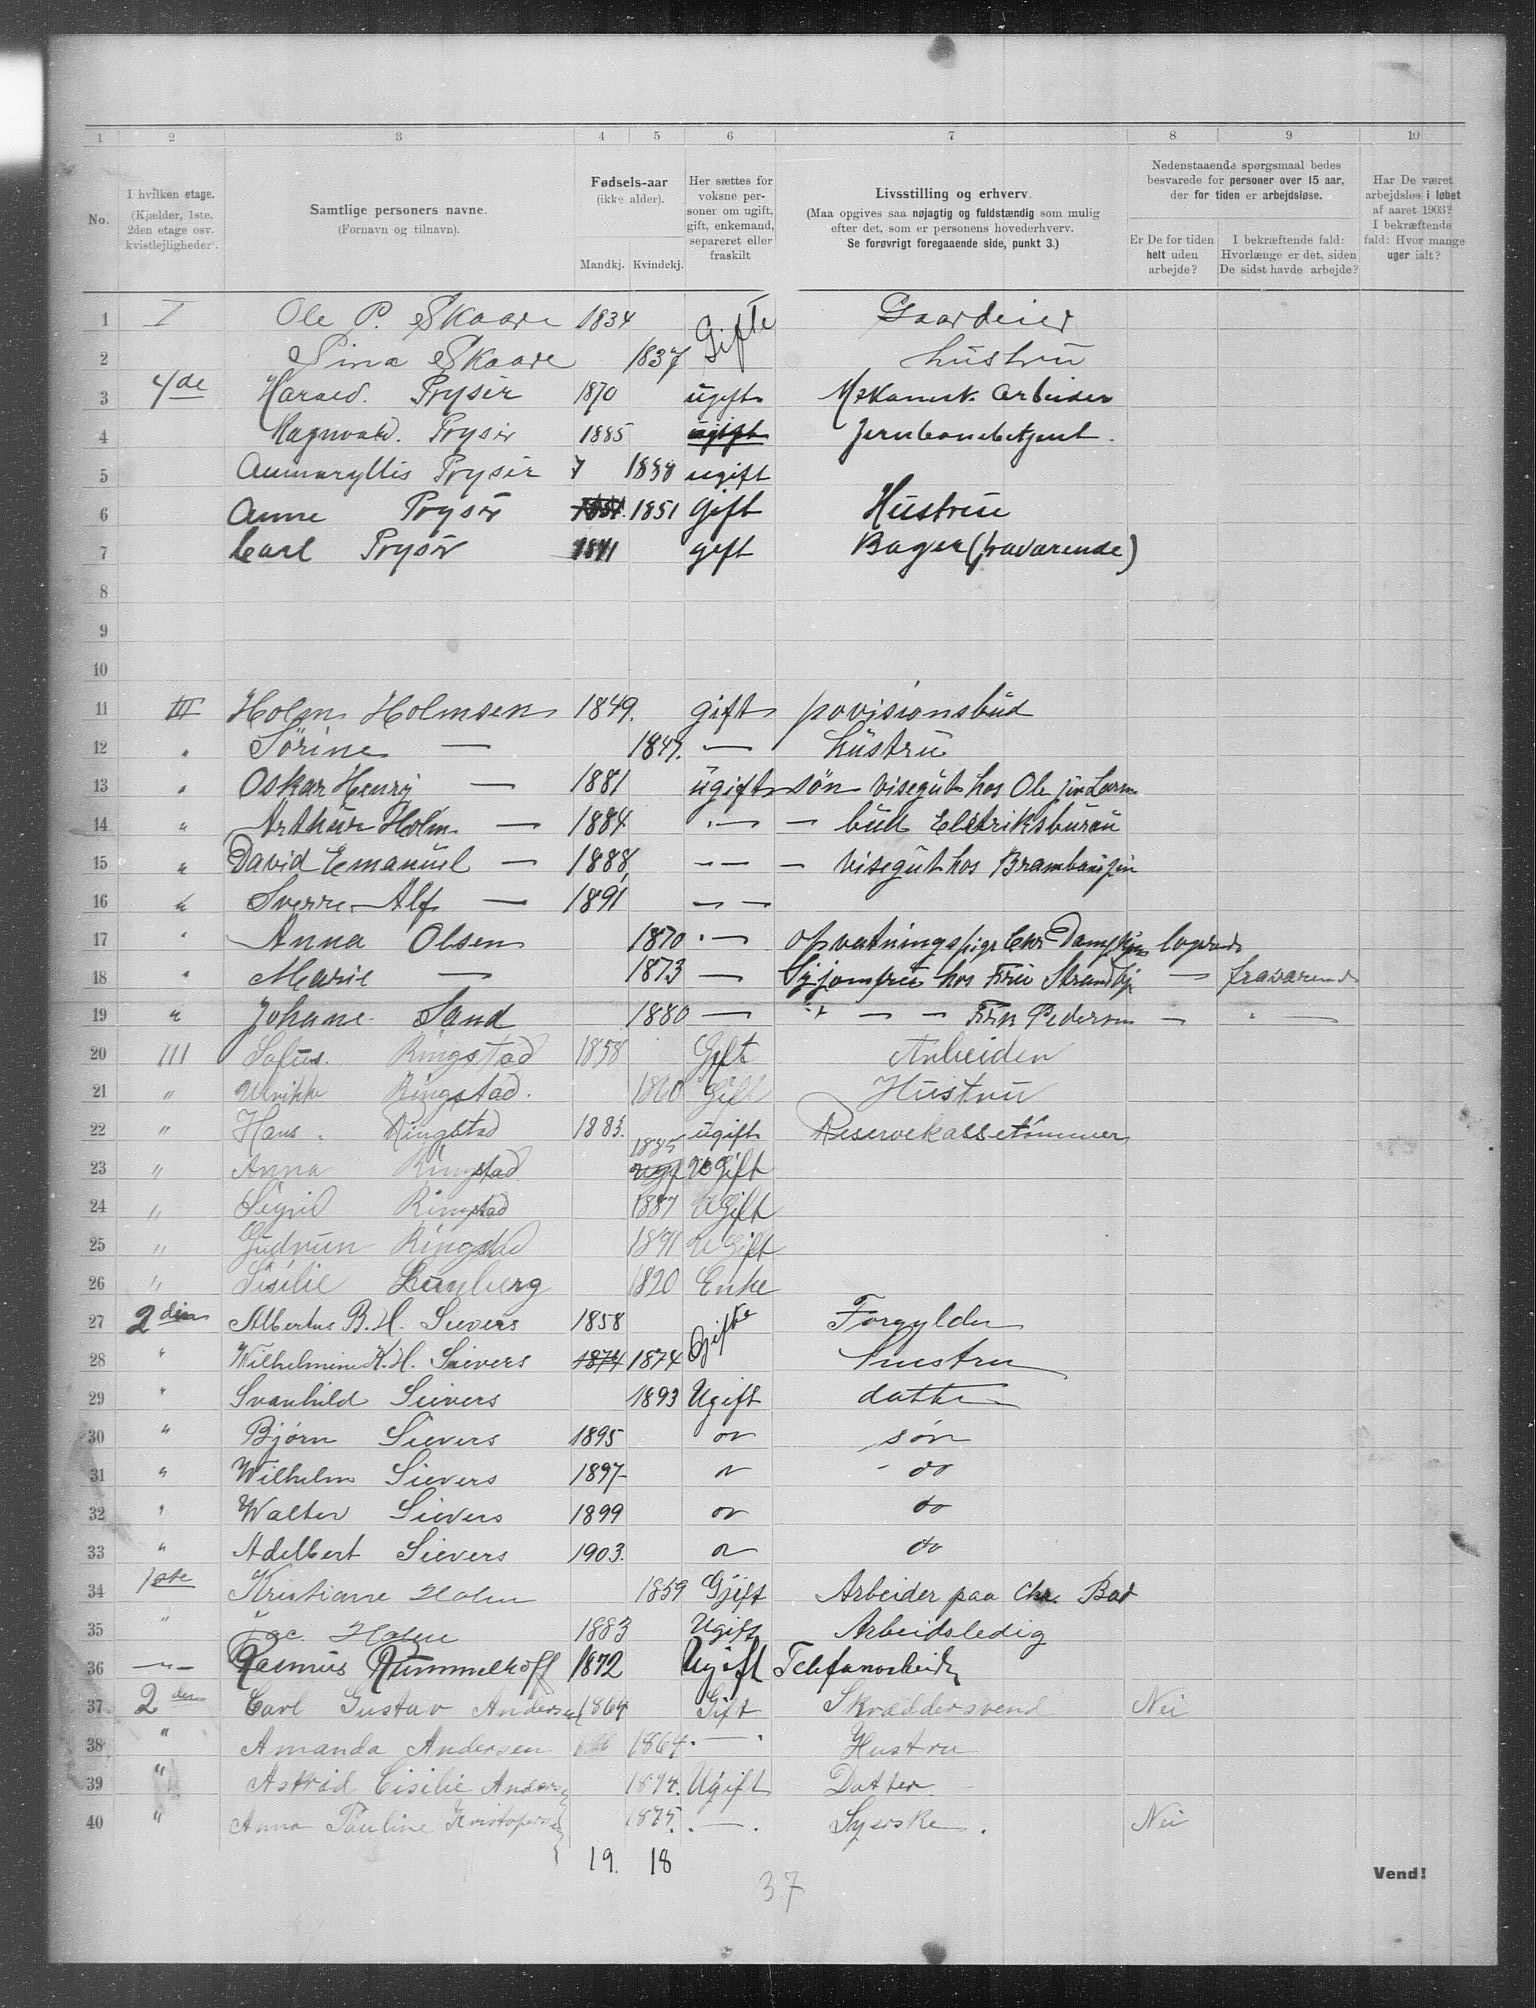 1 2 3 4 5 6 7 8 9 10
No.
I hvilken etage. (Kjælder, 1ste, 2den etage osv. kvistlejligheder).
Samtlige personers navne. (Fornavn og tilnavn).
Fødsels-aar (ikke alder). Mandkj. Kvindekj.
Her sættes for voksne personer om ugift, gift, enkemand, separeret eller fraskilt
Livsstilling og erhverv. (Maa opgives saa nøjagtig og fuldstændig som mulig efter det, som er personens hovederhverv. Se forøvrigt foregaaende side, punkt 3.)
Nedenstaaende spørgsmaal bedes besvarede for personer over 15 aar, der for tiden er arbejdsløse.
Er De for tiden helt uden arbejde?
I bekræftende fald: Hvorlænge er det, siden De sidst havde arbejde?
Har De været arbejdsløs i løbet af aaret 1903? I bekræftende fald: Hvor mange uger ialt?
1 I Ole P. Skaare 1834 Gifte Gaardeier
2 Sina Skaare 1837 hustru
3 4de Harald Prysér 1870 ugift Mekanisk Arbeider
4 Magnvald. Prysér 1885 ugift Jernbanebetjent.
5 Anmaryllis Prysér 1888 ugift
6 Anne Prysér 1851 Gift Hustrue
7 Carl Prysér 1841 gift Bager (fraværende)
8
9
10
11 III Holm Holmsen 1849. gift povisionsbud
12 " Sörine — 1847. — hustru
13 " Oskar Henrij — 1881 ugift søn visegut hos Ole
14 " Arthur Holm — 1884 — — bud Elektriksburau
15 " David Emanuel — 1888 — — — visegut hos
16 " Sverre Alf — 1891 — —
17 " Anna Olsen 1870 — opvartningspige
18 " Marie — 1873 — Syjomfru hos Fru — fraværend
19 " Johane Sand 1880 — " — — Frk Pedersen — " —
20 III Sofus. Ringstad 1858 Gift Arbeider
21 " Ulrikke Ringstad. 1860 Gift Hustru
22 " Hans. Ringstad 1883. ugift Reservekassetømmer
23 " Anna Ringstad 1885 U Gift
24 " Sigrid Ringstad 1887 U Gift
25 " Gudrun Ringstad 1891 U Gift
26 " Sisilie Lundberg 1820 Enke
27 2den Albertus B. H. Sievers 1858 Gifte Forgylder
28 " Wilhelmine K. H. Sievers 1874 1874 Hustru
29 " Svanhild Sievers 1893 Ugift datter
30 " Bjørn Sievers 1895 do søn
31 " Wilhelm Sievers 1897 do do
32 " Walter Sievers 1899 do do
33 " Adelbert Sievers 1903. do do
34 1ste Kristiane Holm 1859 Gjift Arbeider paa Chr. Bad
35 " Jac. Holm 1883 Ugift Arbeidsledig
36 —"— Rasmus Rummelhoff 1872 Ugift Telefonarbeider
37 2den Carl Gustav Andersen 1864 Gift Skræddersvend Nei
38 " Amanda Andersen 1864. — Hustru
39 " Astrid Cisilie Anders 1894. Ugift Datter
40 " Anna Pauline Kristophers 1875. — Syerske. Nei
19. 18
37
Vend!